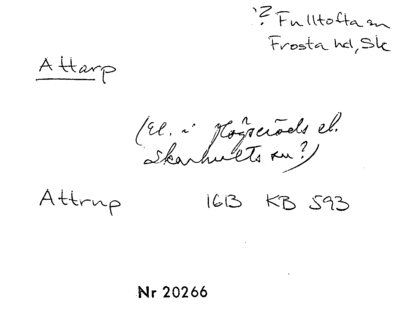 ? Fulltofta sn
Frosta hd, Sk
Attarp
(El. i Högseröds el.
Skarhults sn?)
Attrup 1613 KB 593
Nr 20266